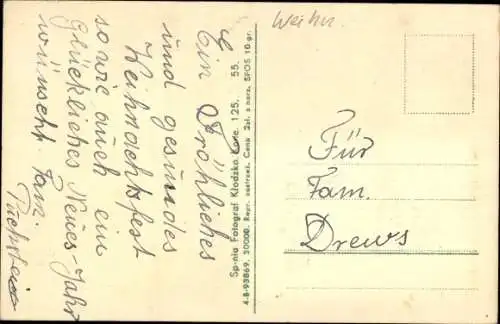 Weihn.
Ein Fröhliches
und gesundes
Weihnachtsfest
sowie auch ein
Glückliches Neues-Jahr
wünscht Fam.
Sp-nia Fotograf Kłodzko, Kole. 125. 55.
4-8-93869. 30000. Repr. zastrzeż. Cena 2zł. z narz. SFOS 10 gr.
Für
Fam.
Drews